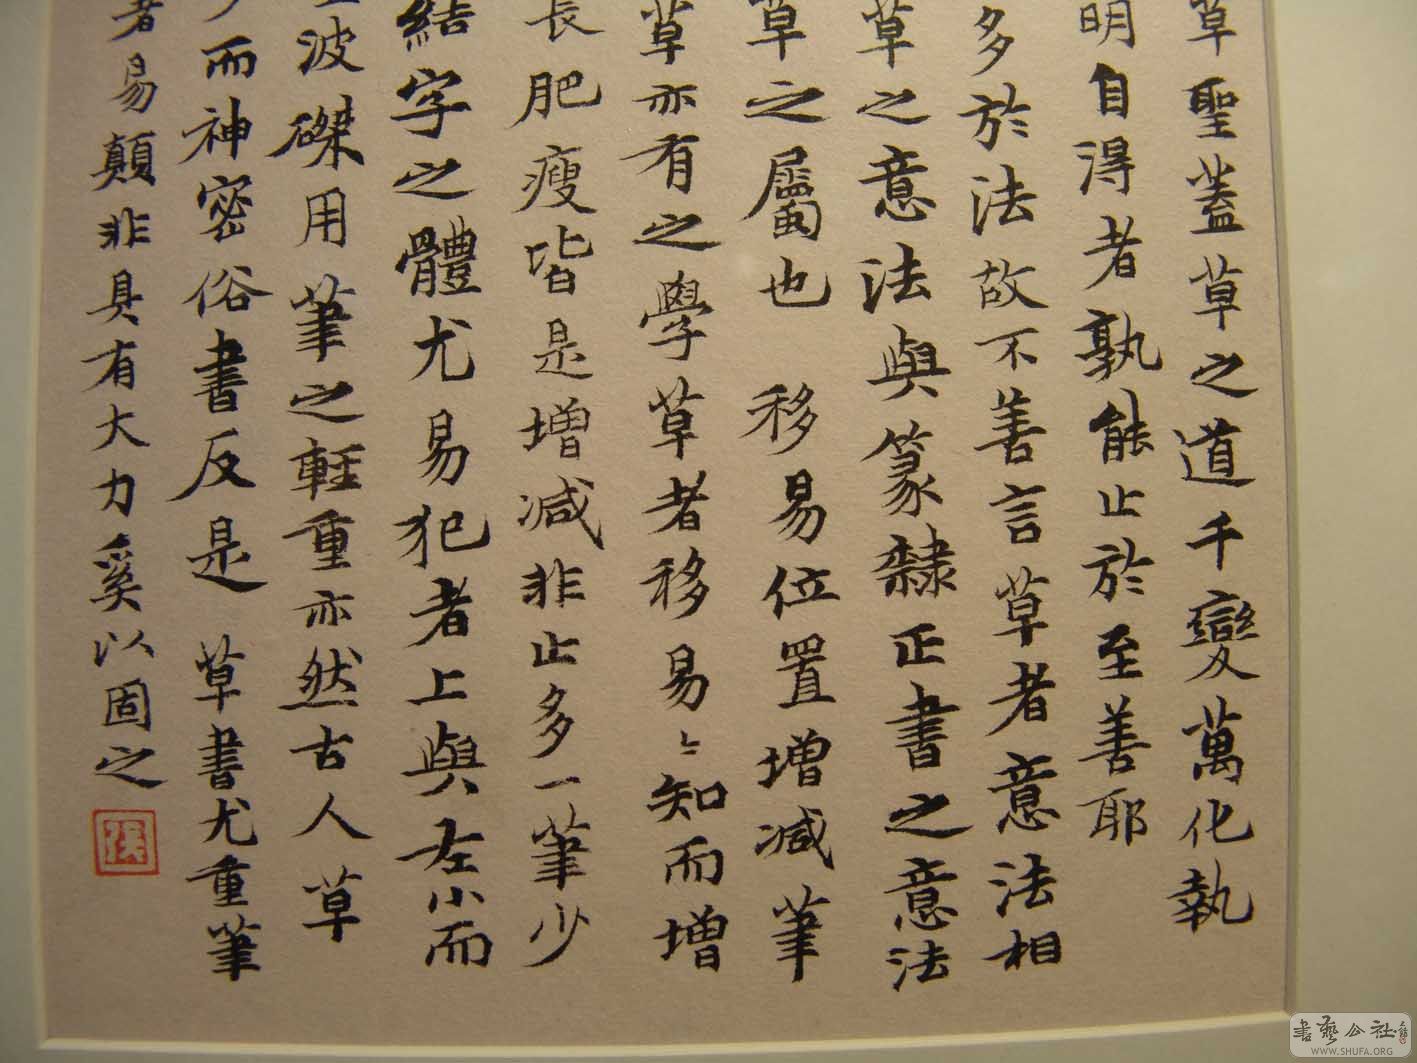 草聖蓋草之道千變萬化執
明自得者孰能止於至善耶
多於法故不善言草者意法相
草之意法與篆隸正書之意法
草之屬也 移易位置增減筆
草亦有之學草者移易〻知而增
長肥瘦皆是增減非止多一筆少
結字之體尤易犯者上與左小而
波磔用筆之輕重亦然古人草
而神密俗書反是 草書尤重筆
者易顛非具有大力奚以固之
書藝公社
WWW.SHUFA.ORG